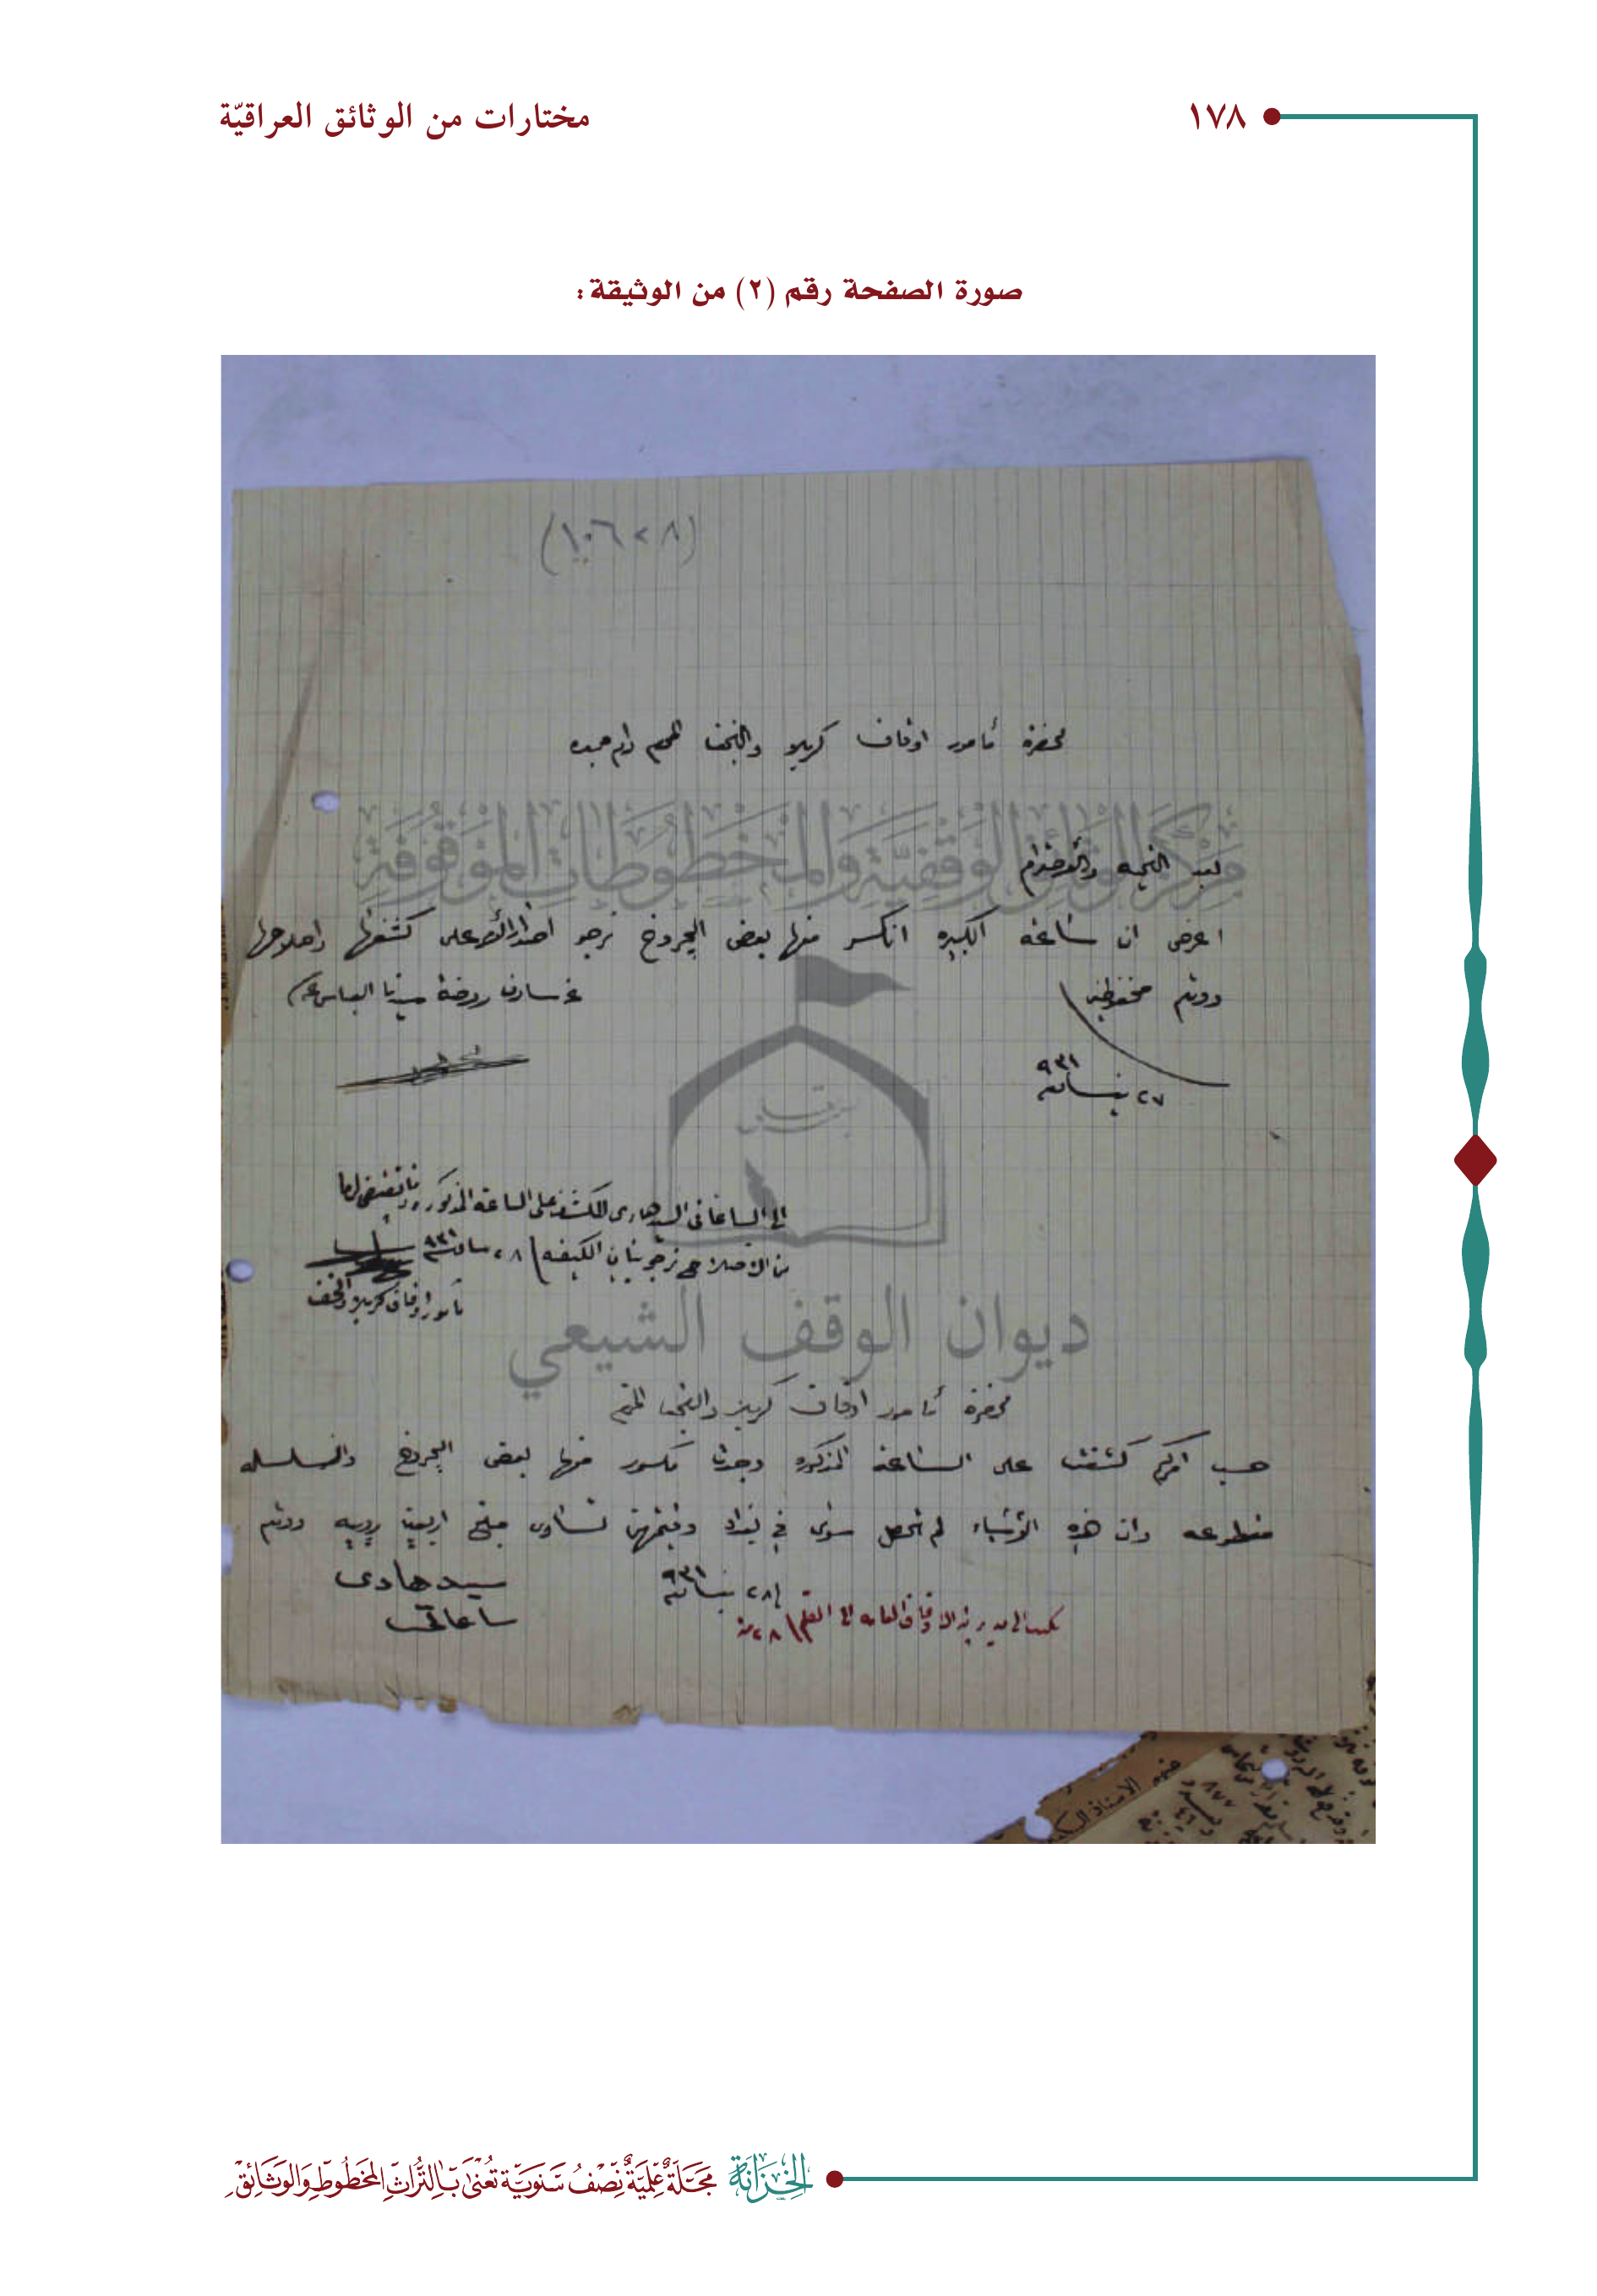 مختارات من الوثائق العراقيّة
١٧٨
صورة الصفحة رقم (٢) من الوثيقة:
(١٠٦٢٨)
لحضرة مأمور اوقاف كربلا والنجف المحترم دام مجده
بعد التحيه والأحترام
اعرض ان ساعة الكبيره انكسر منها بعض الچروخ نرجو اصدار الأمر على كشفها واصلاحها
ودمتم محفوظين
سادن روضة سيدنا العباس
٢٧ نيسان سنة ٩٣١
الى الساعاتي السيد هادي للكشف على الساعة المذكوره وما تقتضي لها
من الاصلاح نرجو بيان الكيفيه ٢٨ نيسان سنة ٩٣١
مأمور اوقاف كربلا والنجف
لحضرة مأمور اوقاف كربلا والنجف المحترم
حسب امركم كشفت على الساعة المذكوره وجدنا مكسور منها بعض الچروخ والسلسله
مقطوعه وان هذه الأشياء لم تحصل سوى في بغداد وقيمتهن تساوى مبلغ اربعين روپيه ودمتم
٢٨ نيسان سنة ٩٣١
سيد هادي
ساعاتي
كتب الى مديرية الاوقاف العامه
مركز الوثائق الوقفية والمخطوطات الموقوفة
ديوان الوقف الشيعي
الخِزانة مَجَلَّةٌ عِلميَّةٌ نِصْفُ سَنَويَّة تُعْنى بالتُّراثِ المَخطُوطِ وَالوَثائِق